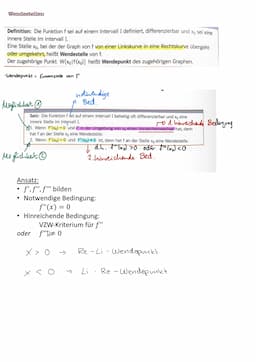 Wendestellen
Definition: Die Funktion f sei auf einem Intervall I definiert, differenzierbar und x₀ sei eine
innere Stelle im Intervall I.
Eine Stelle x₀, bei der der Graph von f von einer Linkskurve in eine Rechtskurve übergeht
oder umgekehrt, heißt Wendestelle von f.
Der zugehörige Punkt W(x₀|f(x₀)) heißt Wendepunkt des zugehörigen Graphen.
Wendepunkt = Extrempunkt von f'
notwendige
Bed
Möglichkeit ①
Satz: Die Funktion f sei auf einem Intervall I beliebig oft differenzierbar und x₀ eine
innere Stelle im Intervall I.
1. Wenn f''(x₀)=0 und
hat, dann
hat f an der Stelle x₀ eine Wendestelle.
2. Wenn f''(x₀)=0 und f'''(x₀)≠0 ist, dann hat f an der Stelle x₀ eine Wendestelle.
1. hinreichende Bedingung
Möglichkeit ②
d.h. f'''(x₀) >0 oder f'''(x₀) <0
2. hinreichende Bed.
Ansatz:
• f', f'', f''' bilden
• Notwendige Bedingung:
f''(x) = 0
• Hinreichende Bedingung:
VZW-Kriterium für f''
oder f'''≠ 0
x > 0 → Re - Li - Wendepunkt
x < 0 → Li - Re - Wendepunkt